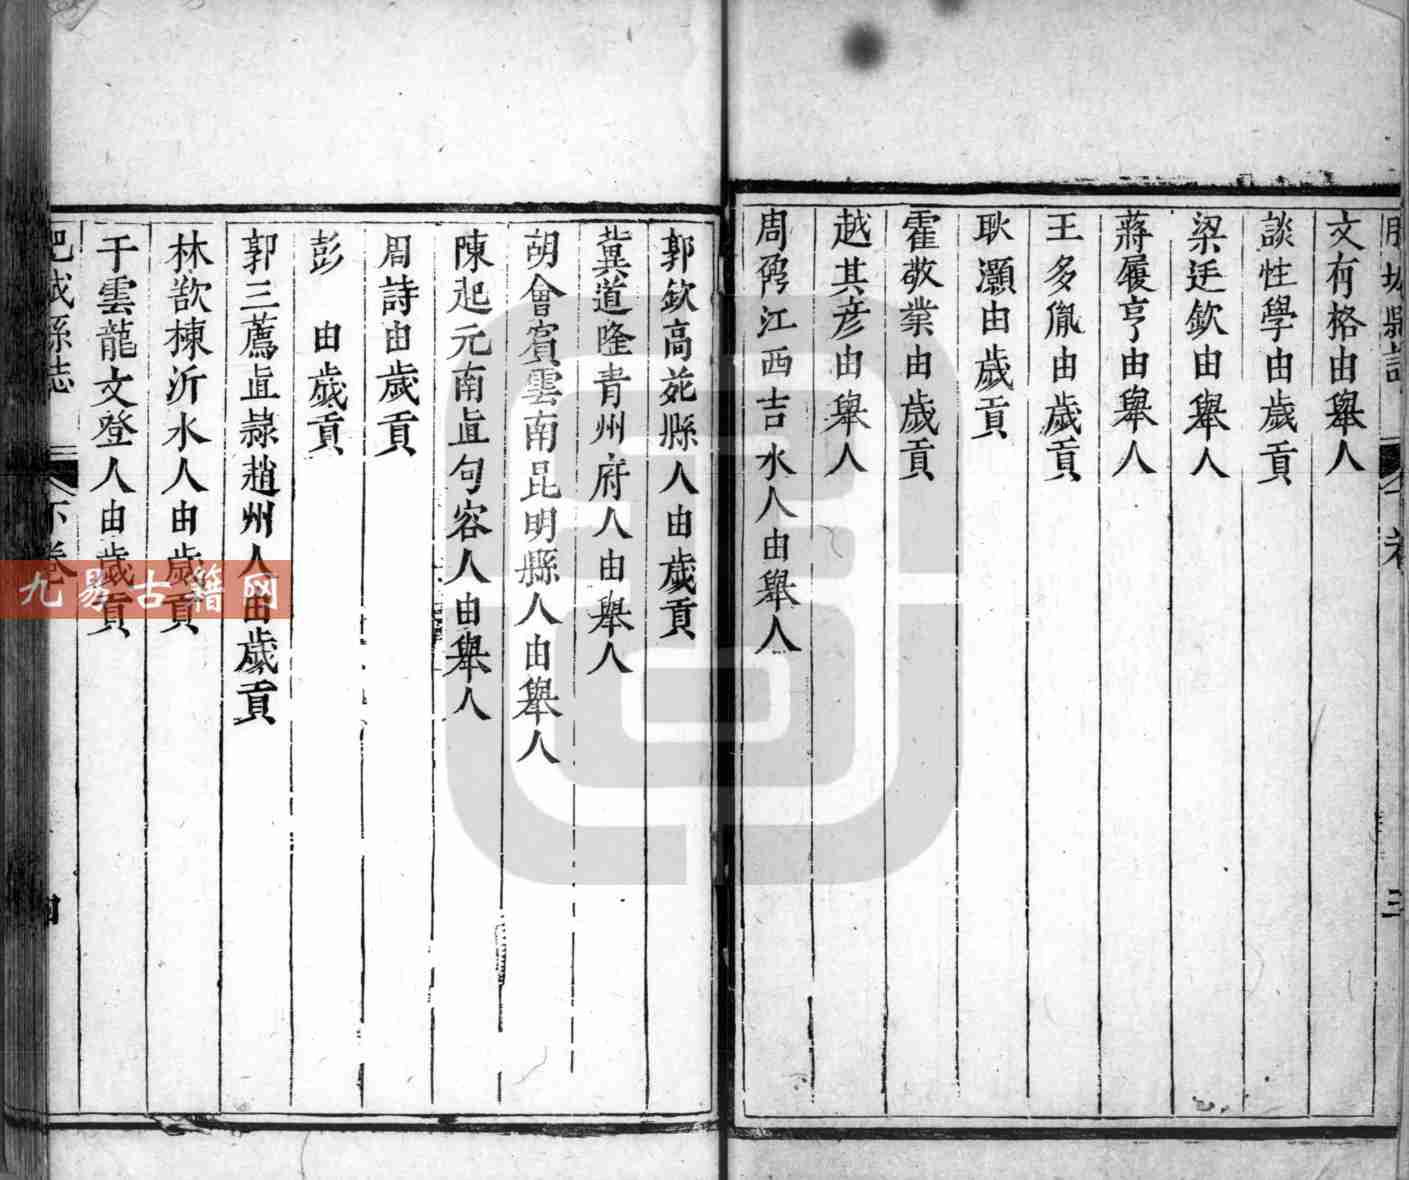 文有格由舉人
談性學由歲貢
梁廷欽由舉人
蔣履亨由舉人
王多胤由歲貢
耿灝由歲貢
霍敬業由歲貢
越其彦由舉人
周 江西吉水人由舉人
郭欽高苑縣人由歲貢
冀道隆青州府人由舉人
胡會賓雲南昆明縣人由舉人
陳起元南直句容人由舉人
周詩由歲貢
彭　由歲貢
郭三薦直隸趙州人由歲貢
林 棟沂水人由歲貢
于雲龍文登人由歲貢
肥城縣志 下卷 四
九易古籍网